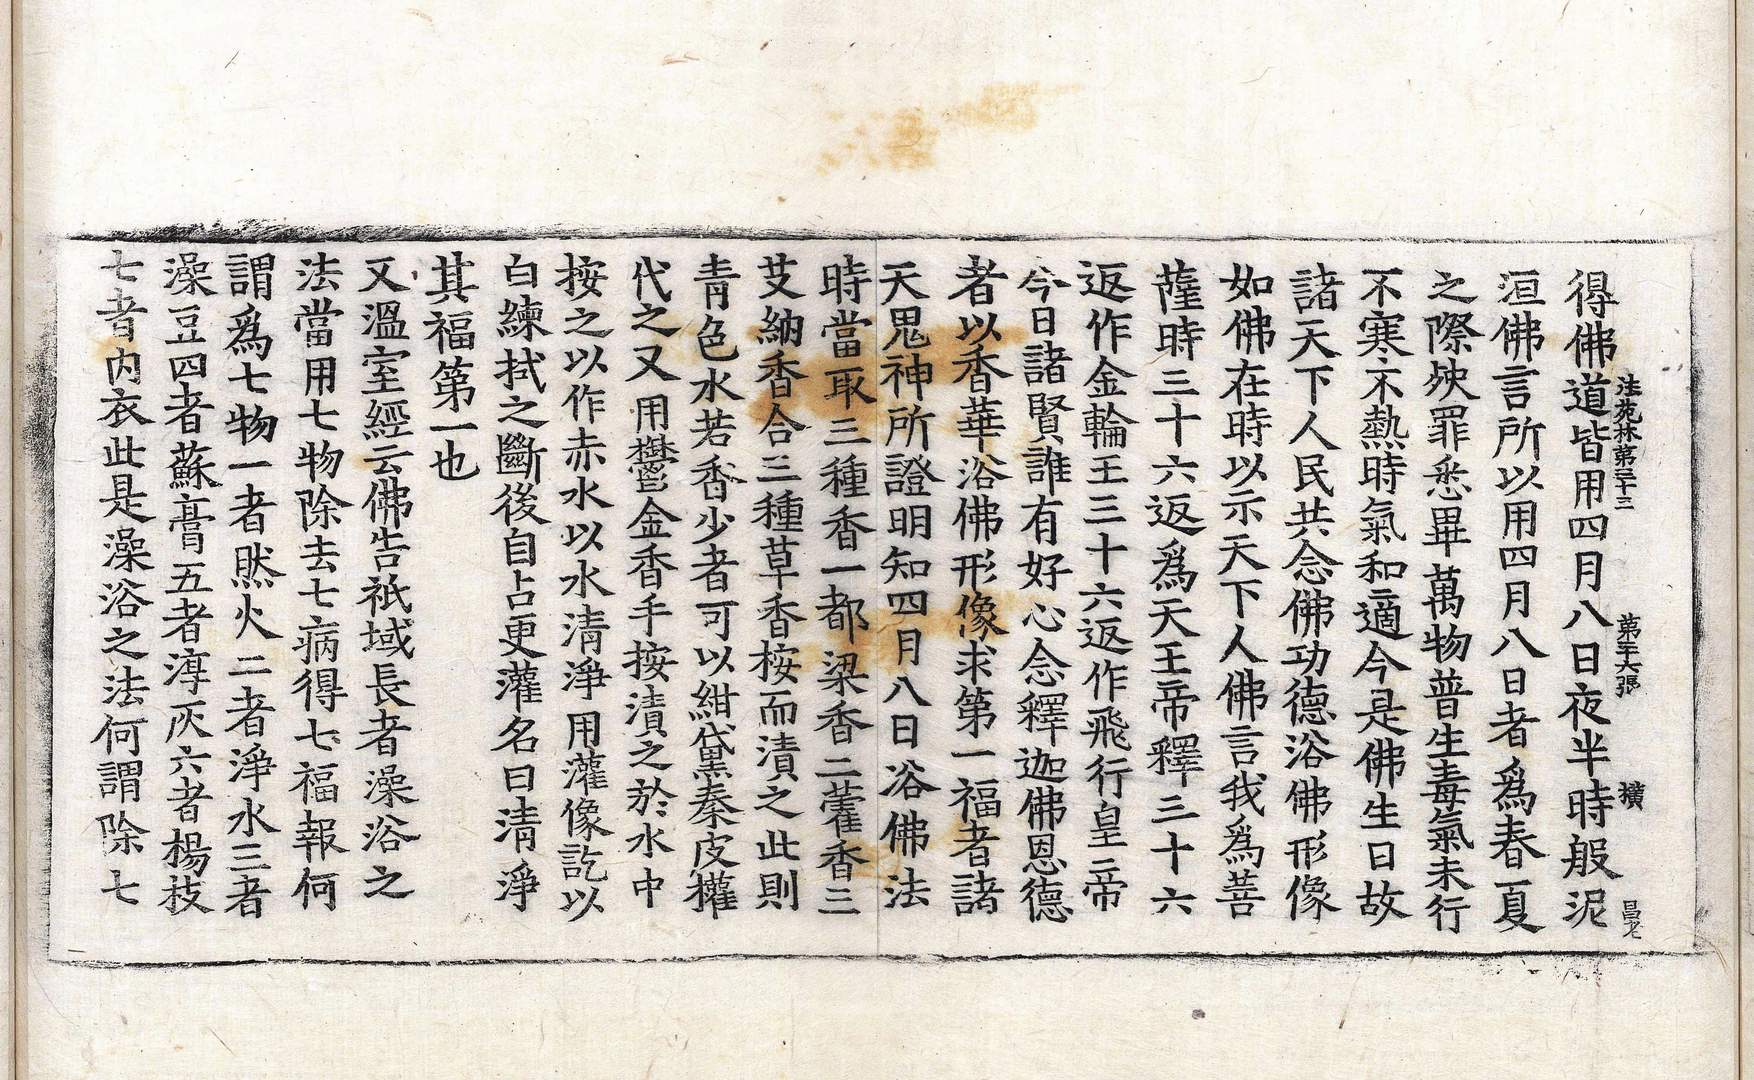 法苑林第三十三 第二十六張 橫 昌老
得佛道皆用四月八日夜半時般泥
洹佛言所以用四月八日者爲春夏
之際殃罪悉畢萬物普生毒氣未行
不寒不熱時氣和適今是佛生日故
諸天下人民共念佛功德浴佛形像
如佛在時以示天下人佛言我爲菩
薩時三十六返爲天王帝釋三十六
返作金輪王三十六返作飛行皇帝
今日諸賢誰有好心念釋迦佛恩德
者以香華浴佛形像求第一福者諸
天鬼神所證明知四月八日浴佛法
時當取三種香一都梁香二藿香三
艾納香合三種草香按而漬之此則
青色水若香少者可以紺黛秦皮權
代之又用鬱金香手按漬之於水中
按之以作赤水以水清淨用灌像訖以
白練拭之斷後自占更灌名曰清淨
其福第一也
又溫室經云佛告祇域長者澡浴之
法當用七物除去七病得七福報何
謂爲七物一者然火二者淨水三者
澡豆四者蘇膏五者淳灰六者楊枝
七者内衣此是澡浴之法何謂除七